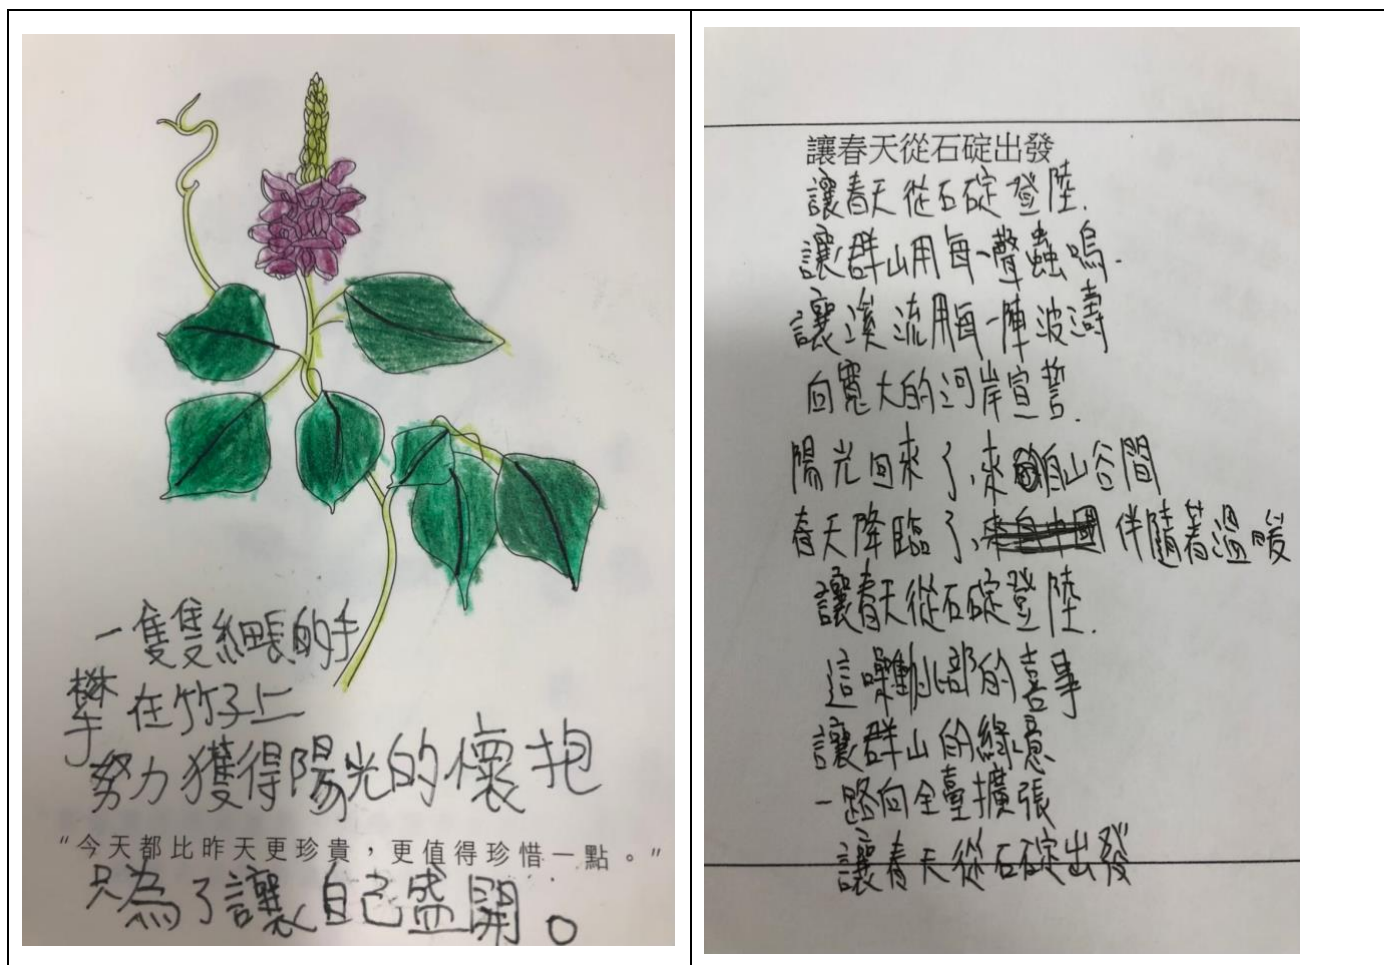 一隻隻細長的手
攀在竹子上
努力獲得陽光的懷抱
“今天都比昨天更珍貴，更值得珍惜一點。”
只為了讓自己盛開。
讓春天從石碇出發
讓春天從石碇登陸.
讓群山用每一聲蟲鳴.
讓溪流用每一陣波濤
向寬大的河岸宣誓.
陽光回來了,來自山谷間
春天降臨了,伴隨著溫暖
讓春天從石碇登陸.
這噪動北部的喜事
讓群山的綠意
一路向全臺擴張
讓春天從石碇出發